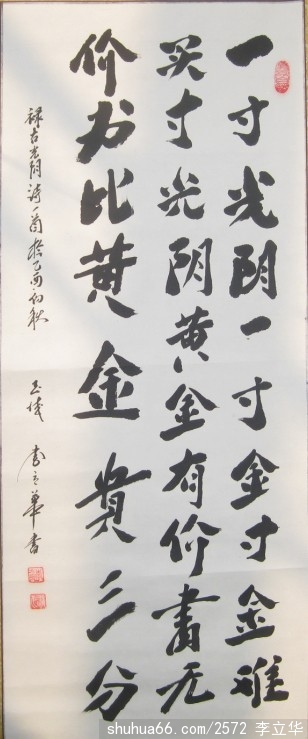 一寸光阴一寸金寸金难
买寸光阴黄金有价書无
价书比黄金贵三分
録古光阴诗一首於乙酉初秋
李立华書
shuhua66.com/2572 李立华